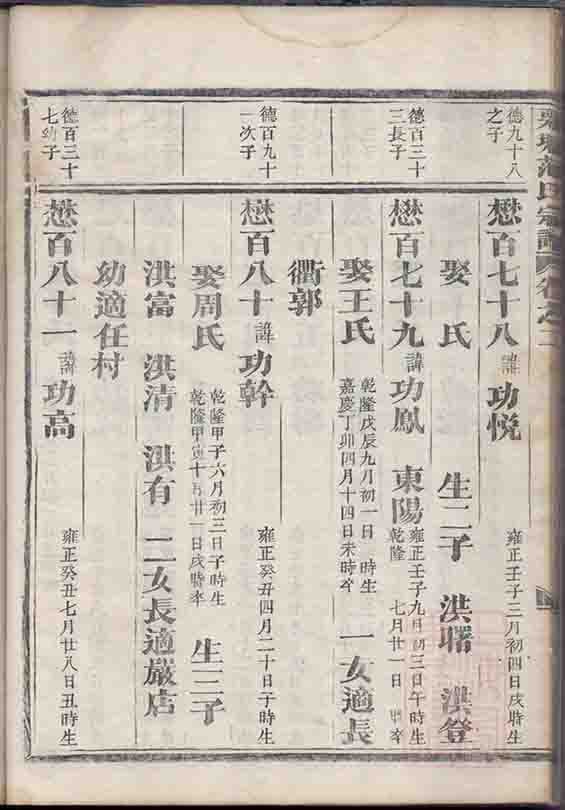 范氏宗譜 卷之二
德九十八之子
懋百七十八 諱 功悅 雍正壬子三月初四日戌時生
娶 氏 生二子 洪曙 洪登
德百三十三長子
懋百七十九 諱 功鳳 東陽 雍正壬子九月初三日午時生 乾隆 七月廿一日 時卒
娶王氏 乾隆戊辰九月初一日 時生 嘉慶丁卯四月十四日未時卒 一女適長
衢郭
德百九十一次子
懋百八十 諱 功幹 雍正癸丑四月二十日子時生
娶周氏 乾隆甲子六月初三日子時生 乾隆甲寅十月廿一日戌時卒 生三子
洪富 洪清 洪有 二女長適嚴店
幼適任村
德百三十七幼子
懋百八十一 諱 功高 雍正癸丑七月廿八日丑時生